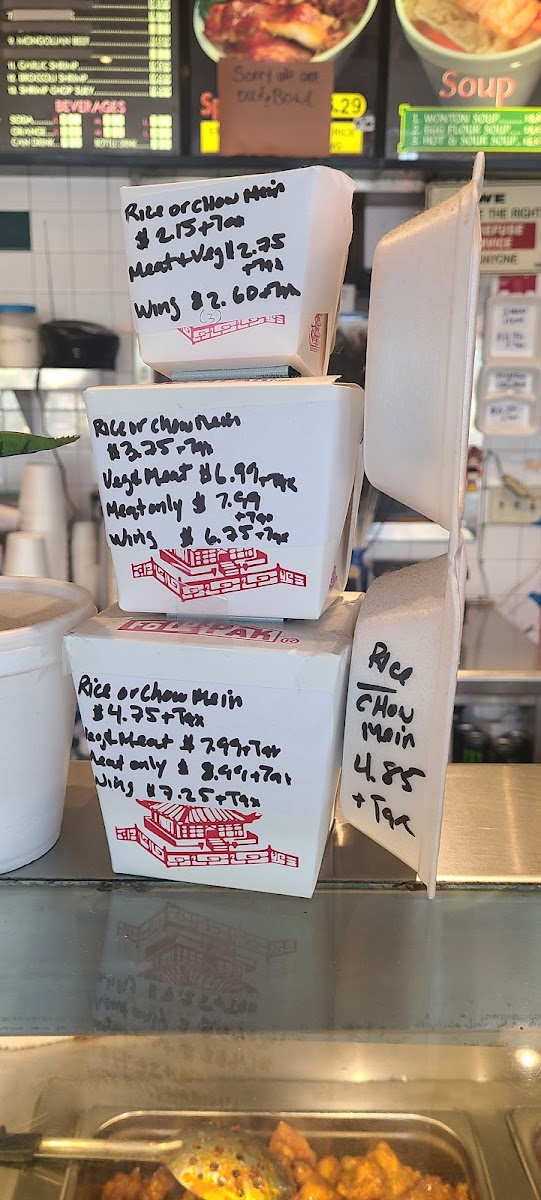 9. MONGOLIAN BEEF
11. GARLIC SHRIMP
12. BROCCOLI SHRIMP
13. SHRIMP CHOP SUEY
BEVERAGES
SODA
ORANGE
CAN DRINK
Sorry we are
out, Bowl
.29
Soup
1. WONTON SOUP
2. EGG FLOUR SOUP
3. HOT & SOUR SOUP
WE
E THE RIGHT
REFUSE
ANYONE
Rice or Chow Mein
$ 2.15 + Tax
Meat + Veg $ 2.75
+ Tax
Wing $ 2.60 + Tax
(3)
Rice or Chow Mein
$3.75 + Tax
Veg & Meat $6.99 + Tax
Meat only $ 7.99
+ Tax
Wing $ 6.75 + Tax
FOLD-PAK
Rice or Chow Mein
$4.75 + Tax
Veg & Meat $ 7.99 + Tax
Meat only $ 8.99 + Tax
Wing $7.25 + Tax
Rice
Chow
Mein
4.85
+ Tax